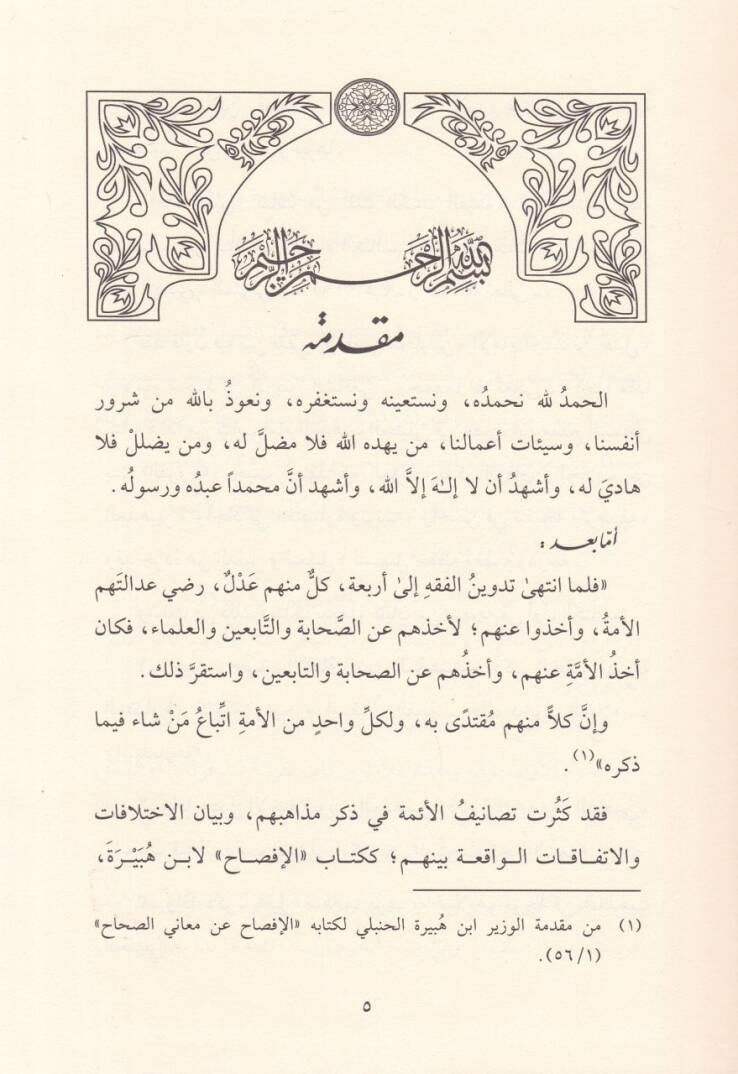 بسم الله الرحمن الرحيم
مقدمة
الحمدُ لله نحمدُه، ونستعينه ونستغفره، ونعوذُ بالله من شرور
أنفسنا، وسيئات أعمالنا، من يهده الله فلا مضلَّ له، ومن يضللْ فلا
هاديَ له، وأشهدُ أن لا إلـٰهَ إلاَّ الله، وأشهد أنَّ محمداً عبدُه ورسولُه.
أمّا بعد:
«فلما انتهىٰ تدوينُ الفقهِ إلىٰ أربعة، كلٌّ منهم عَدْلٌ، رضي عدالتَهم
الأمةُ، وأخذوا عنهم؛ لأخذهم عن الصَّحابة والتَّابعين والعلماء، فكان
أخذُ الأمَّةِ عنهم، وأخذُهم عن الصحابة والتابعين، واستقرَّ ذلك.
وإنَّ كلاًّ منهم مُقتدًى به، ولكلِّ واحدٍ من الأمةِ اتِّباعُ مَنْ شاء فيما
ذكره»(١).
فقد كَثُرت تصانيفُ الأئمة في ذكر مذاهبهم، وبيان الاختلافات
والاتفاقات الواقعة بينهم؛ ككتاب «الإفصاح» لابن هُبَيْرَةَ،
(١) من مقدمة الوزير ابن هُبيرة الحنبلي لكتابه «الإفصاح عن معاني الصحاح»
(٥٦/١).
٥